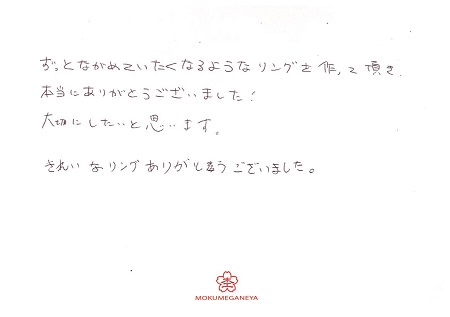 ずっとながめていたくなるようなリングを作って頂き
本当にありがとうございました!
大切にしたいと思います。
きれいなリングありがとうございました。
MOKUMEGANEYA